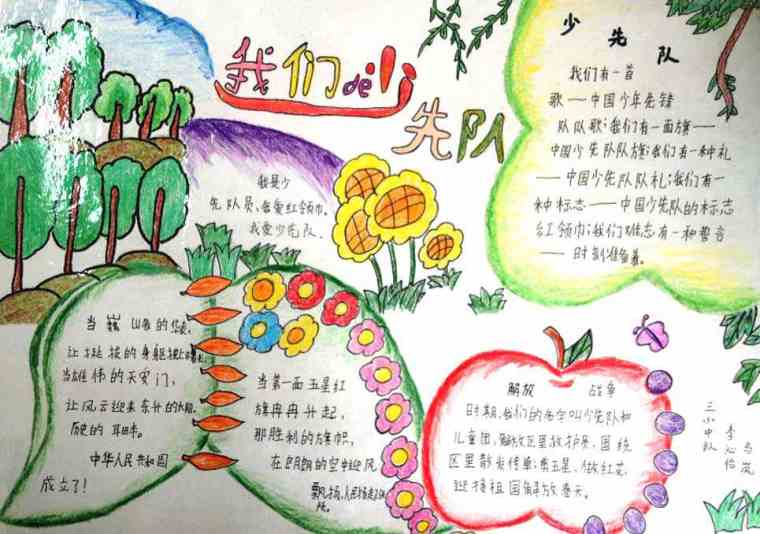 我们de
先队
我是少
先队员,我爱红领巾。
我爱少先队.
少先队
我们有一首
歌——中国少年先锋
队队歌;我们有一面旗——
中国少先队队旗;我们有一种礼
——中国少先队队礼;我们有一
种标志——中国少先队的标志
红领巾;我们有一种誓言
——时刻准备着。
当巍
让挺拔的身躯
当雄伟的天安门,
让风云迎来东升的太阳.
历史的
中华人民共和国
成立了!
当第一面五星红
旗冉冉升起,
那胜利的旗帜,
在朗朗的空中迎风
飘扬,人民
解放 战争
时期,我们的名字叫少先队和
儿童团,解放区里放护哥,国统
区里散发传单;绣五星,做红花
迎接祖国解放春天。
三小中队
李心怡